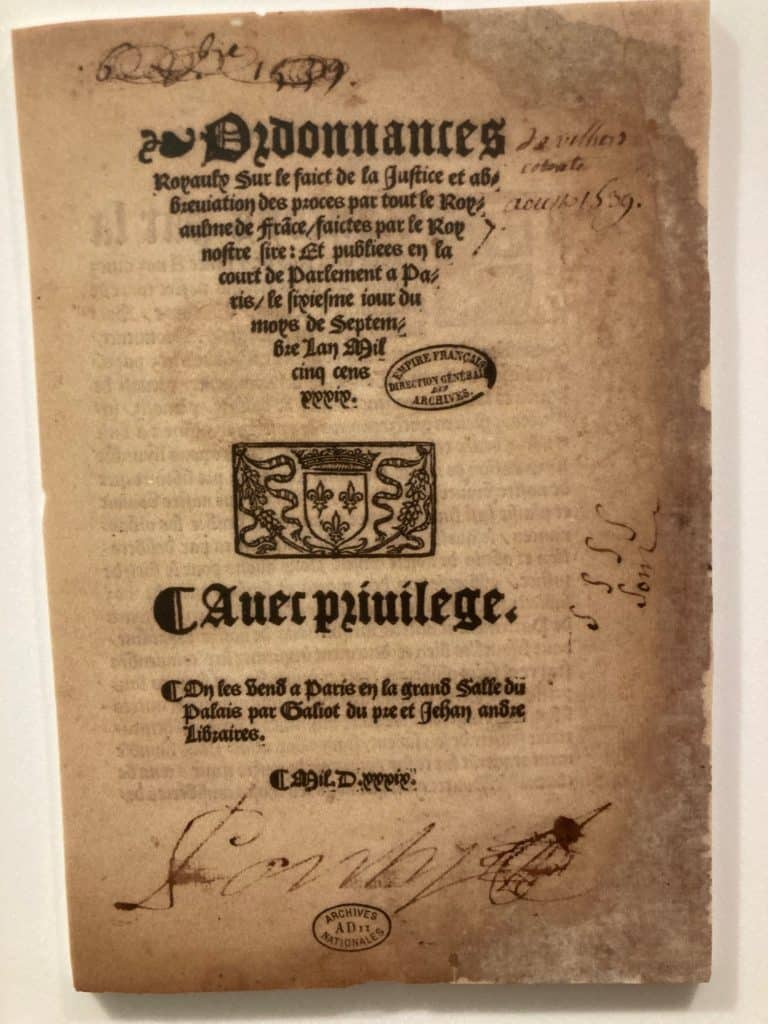 1539.
Ordonnances
de villers
Royaulx Sur le faict de la Justice et ab⸗
coterets
breviation des proces par tout le Roy⸗
aoust 1539.
aulme de Frãce/faictes par le Roy
nostre sire: Et publiees en la
court de Parlement a Pa⸗
ris/le sixiesme iour du
moys de Septem⸗
bre Lan Mil
cinq cens
xxxix.
EMPIRE FRANÇAIS
DIRECTION GÉNÉRALE
DES
ARCHIVES.
¶Auec priuilege.
¶On les vend a Paris en la grand Salle du
Palais par Galiot du pre et Jehan andre
Libraires.
¶Mil. D. xxxix.
ARCHIVES
AD II
NATIONALES